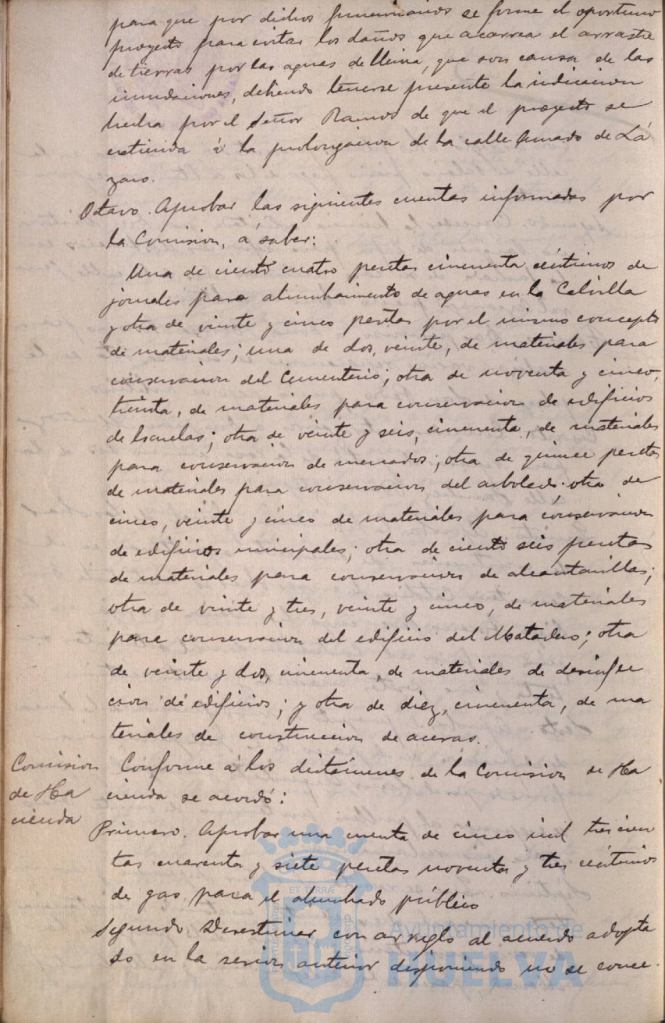 para que por dichos funcionarios se forme el oportuno
proyecto para evitar los daños que acarrea el arrastre
de tierras por las aguas de lluvia, que son causa de las
inundaciones, debiendo tenerse presente la indicacion
hecha por el Señor Ramos de que el proyecto se
estienda á la prolongacion de la calle Amado de Lá
zaro.
Octavo. Aprobar las siguientes cuentas informadas por
la Comision, á saber:
Una de ciento cuatro pesetas cincuenta céntimos de
jornales para alumbramiento de aguas en la Cebolla
y otra de veinte y cinco pesetas por el mismo concepto
de materiales; una de dos, veinte, de materiales para
conservacion del Cementerio; otra de noventa y cinco,
treinta, de materiales para conservacion de edificios
de Escuelas; otra de veinte y seis, cincuenta, de materiales
para conservacion de mercados; otra de quince pesetas
de materiales para conservacion del arbolado. otra de
cinco, veinte y cinco de materiales para conservacion
de edificios municipales; otra de ciento seis pesetas
de materiales para conservacion de alcantarillas;
otra de veinte y tres, veinte y cinco, de materiales
para conservacion del edificio del Matadero; otra
de veinte y dos, cincuenta, de materiales de desinfec
cion de edificios; y otra de diez, cincuenta, de ma
teriales de construccion de aceras.
Comision
de Ha
cienda
Conforme á los dictámenes de la Comision de Ha
cienda se acordó:
Primero. Aprobar una cuenta de cinco mil trescien
tas cuarenta y siete pesetas noventa y tres céntimos
de gas para el alumbrado público
Segundo Desestimar con arreglo al acuerdo adopta
do en la sesion anterior disponiendo no se conce-
Ayuntamiento de
HUELVA